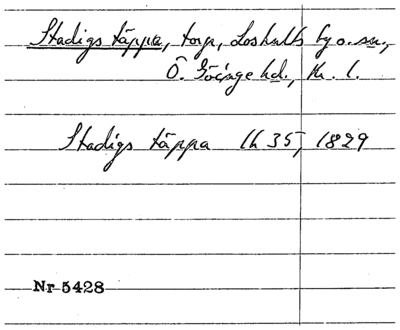 Stadigs täppa, torp, Loshults by o. sn.,
Ö. Göinge hd., Kr. l.
Stadigs täppa lh 35, 1829
Nr 5428